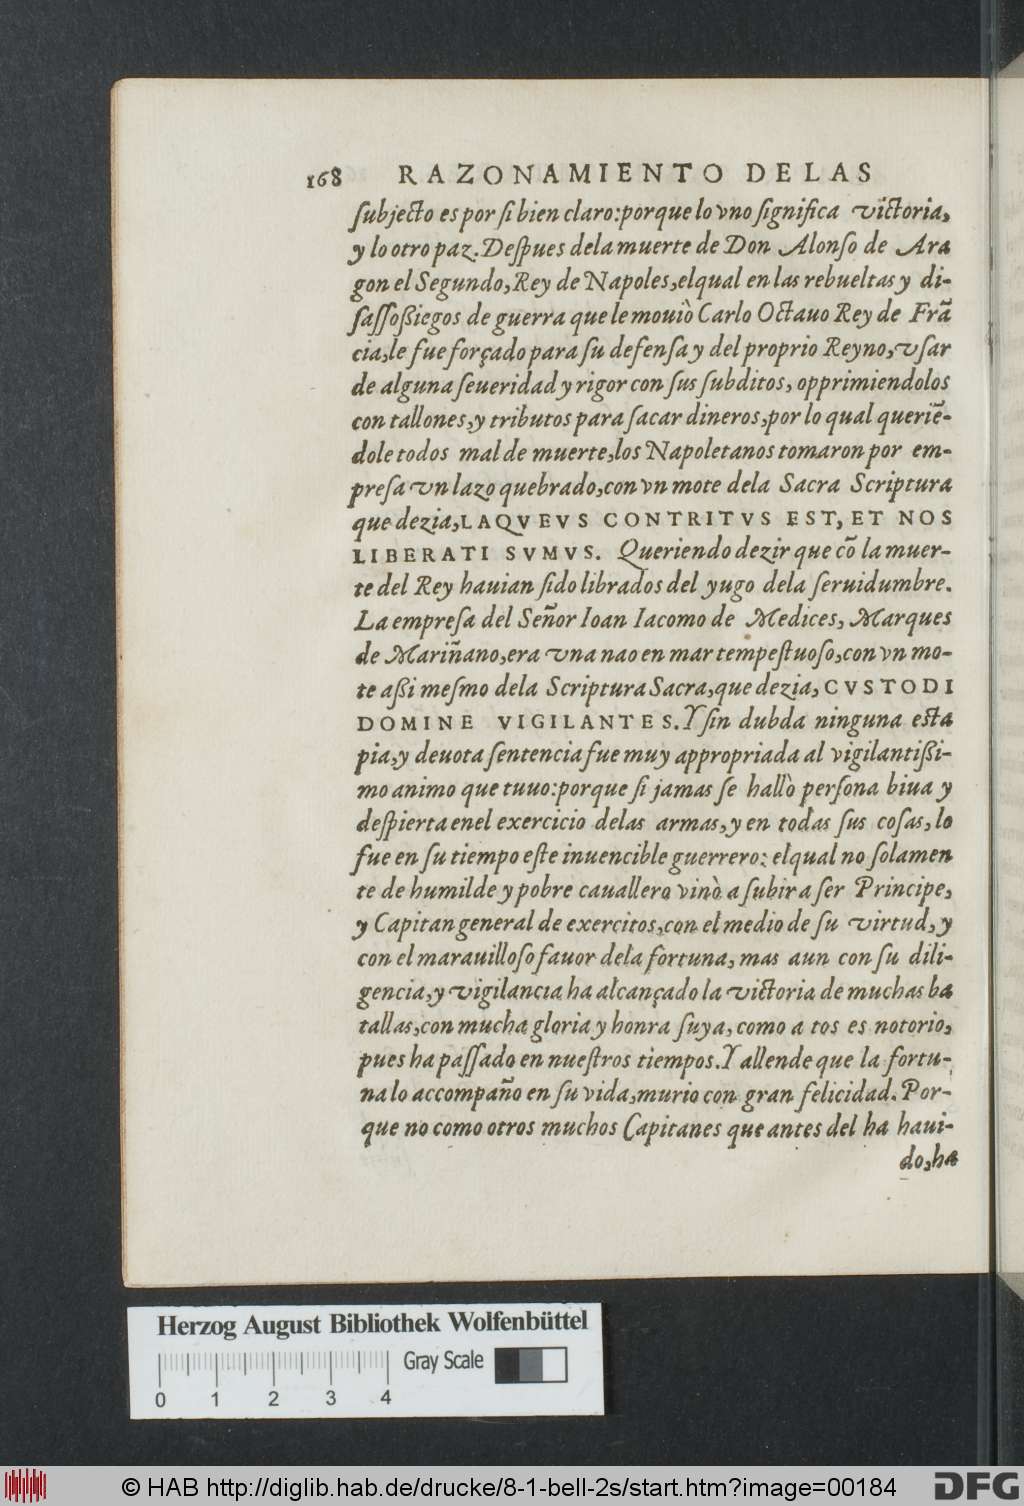 168 RAZONAMIENTO DELAS
ſubjecto es por ſi bien claro:porque lo vno ſignifica victoria,
y lo otro paz. Deſpues dela muerte de Don Alonſo de Ara
gon el Segundo, Rey de Napoles, elqual en las rebueltas y di-
ſaſſoßiegos de guerra que le mouiò Carlo Octauo Rey de Frã
cia, le fue forçado para ſu defenſa y del proprio Reyno, vſar
de alguna ſeueridad y rigor con ſus ſubditos, opprimiendolos
con tallones, y tributos para ſacar dineros, por lo qual queriẽ-
dole todos mal de muerte, los Napoletanos tomaron por em-
preſa vn lazo quebrado, con vn mote dela Sacra Scriptura
que dezia, LAQVEVS CONTRITVS EST, ET NOS
LIBERATI SVMVS. Queriendo dezir que cõ la muer-
te del Rey hauian ſido librados del yugo dela ſeruidumbre.
La empreſa del Señor Ioan Iacomo de Medices, Marques
de Mariñano, era vna nao en mar tempeſtuoſo, con vn mo-
te aßi meſmo dela Scriptura Sacra, que dezia, CVSTODI
DOMINE VIGILANTES. Y ſin dubda ninguna esta
pia, y deuota ſentencia fue muy appropriada al vigilantißi-
mo animo que tuuo: porque ſi jamas ſe hallò perſona biua y
deſpierta enel exercicio delas armas, y en todas sus coſas, lo
fue en ſu tiempo eſte inuencible guerrero: elqual no ſolamen
te de humilde y pobre cauallero vinò a ſubir a ſer Principe,
y Capitan general de exercitos, con el medio de ſu virtud, y
con el marauilloſo fauor dela fortuna, mas aun con ſu dili-
gencia, y vigilancia ha alcançado la victoria de muchas ba
tallas, con mucha gloria y honra ſuya, como a tos es notorio,
pues ha paſſado en nueſtros tiempos. Y allende que la fortu-
na lo accompaño en ſu vida, murio con gran felicidad. Por-
que no como otros muchos Capitanes que antes del ha haui-
do, ha
Herzog August Bibliothek Wolfenbüttel
Gray Scale
0 1 2 3 4
© HAB http://diglib.hab.de/drucke/8-1-bell-2s/start.htm?image=00184 DFG